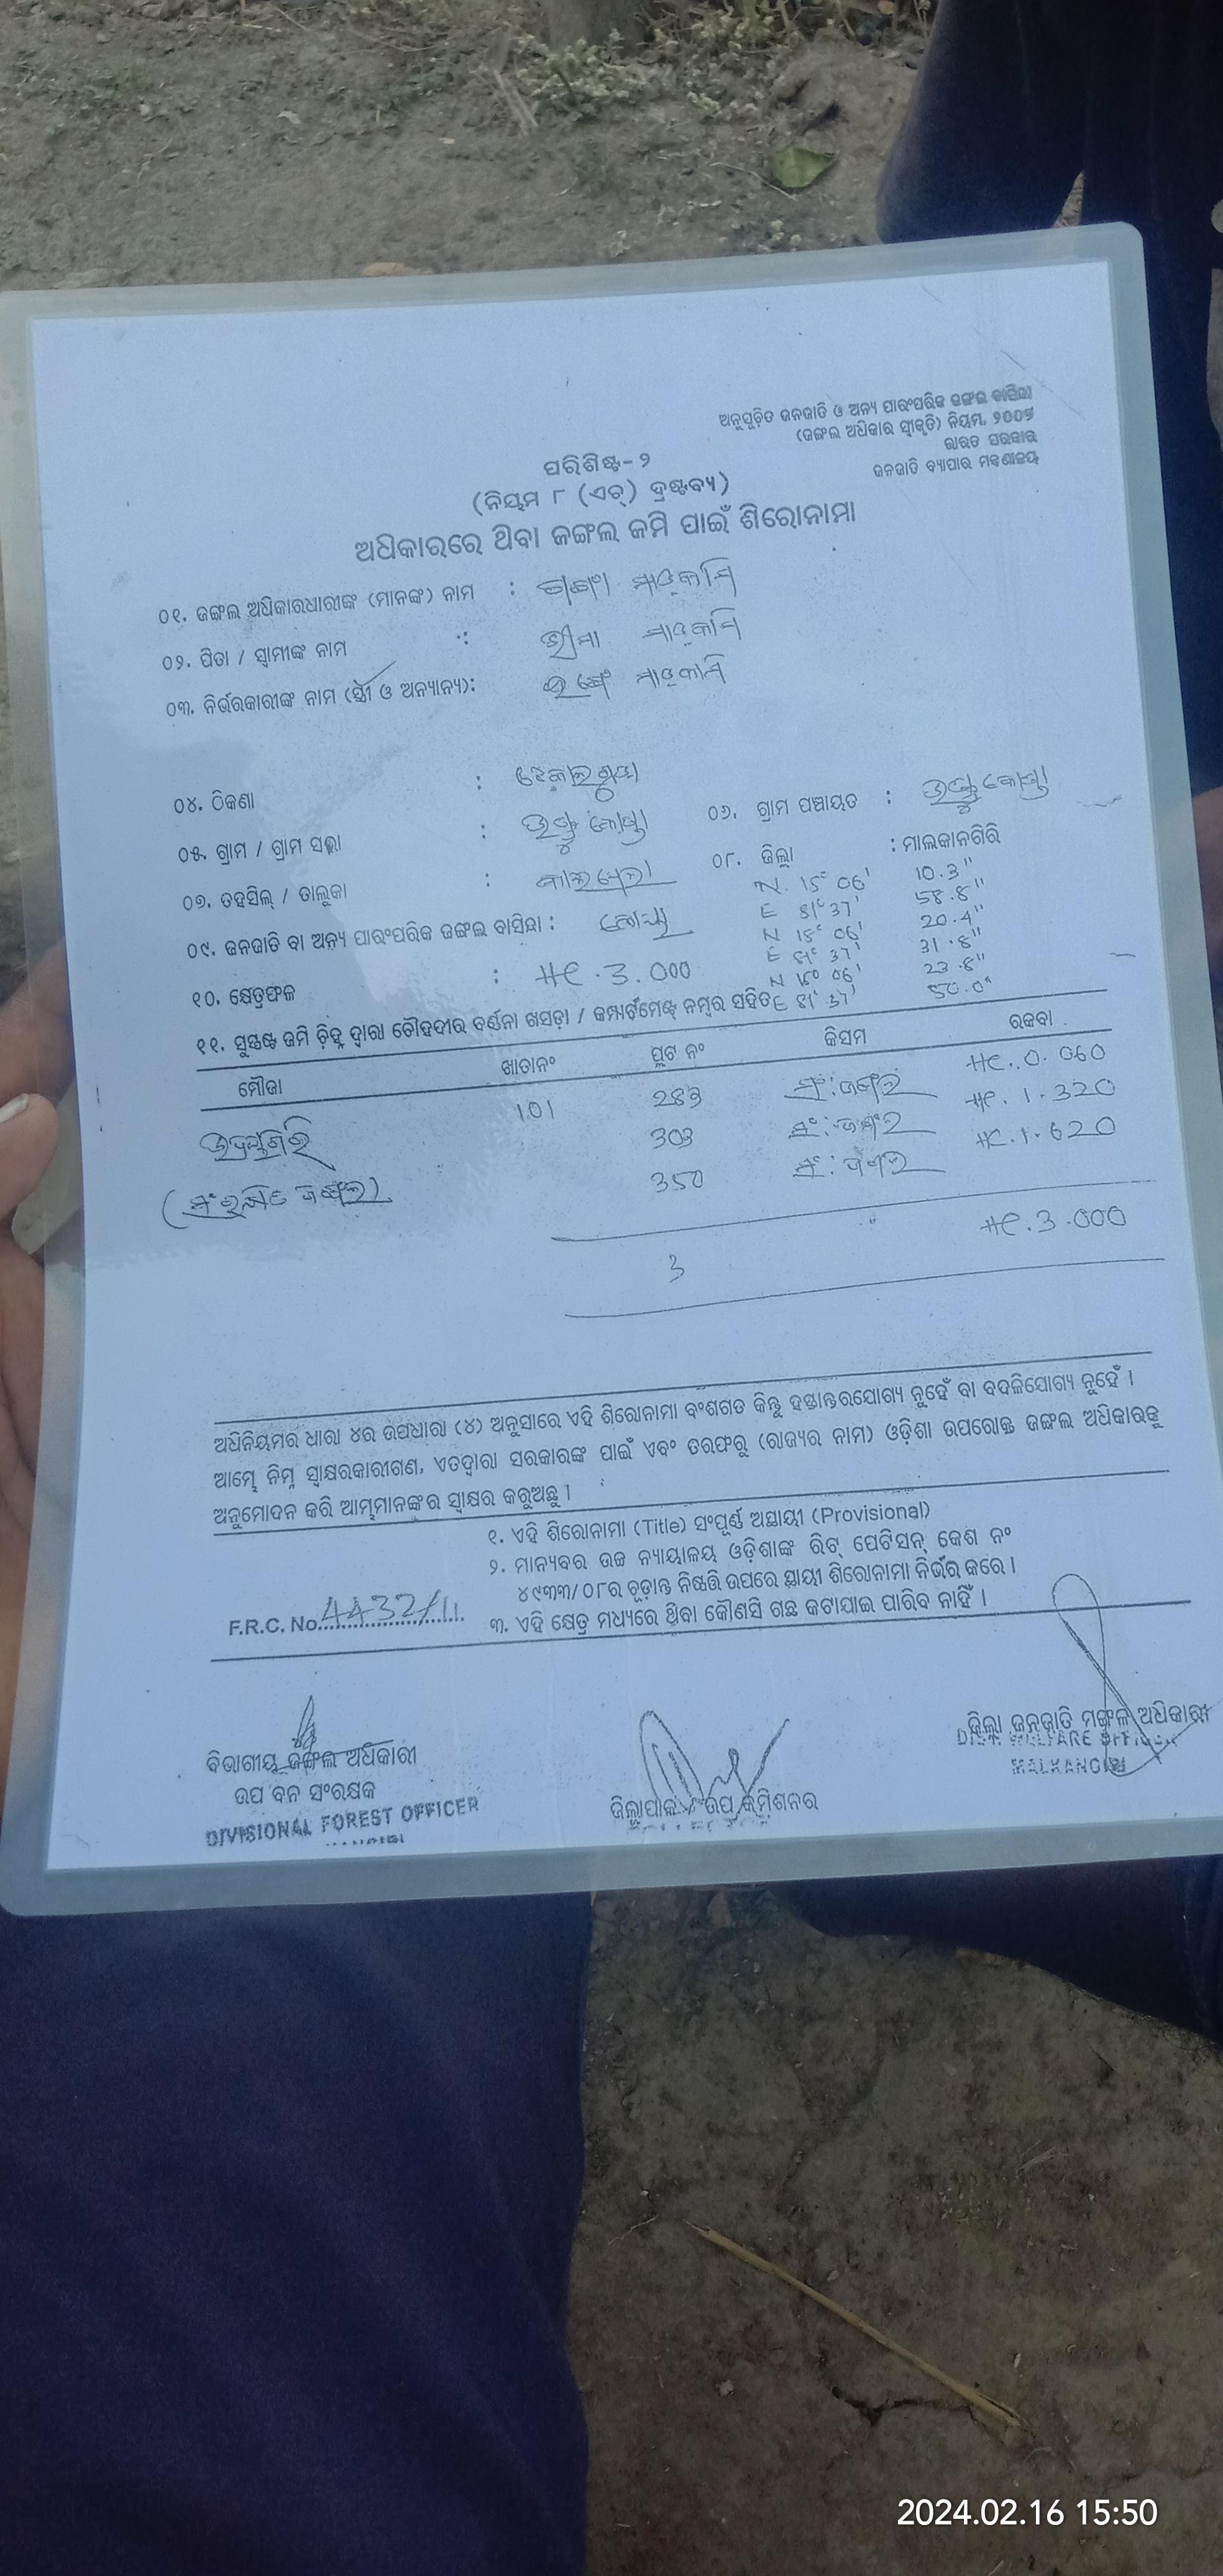 ଅନୁସୂଚିତ ଜନଜାତି ଓ ଅନ୍ୟ ପାରଂପରିକ ଜଙ୍ଗଲ ବାସିନ୍ଦା
(ଜଙ୍ଗଲ ଅଧିକାର ସ୍ୱୀକୃତି) ନିୟମ, ୨୦୦୭
ଭାରତ ସରକାର
ଜନଜାତି ବ୍ୟାପାର ମନ୍ତ୍ରଣାଳୟ
ପରିଶିଷ୍ଟ-୨
(ନିୟମ ୮ (ଏଚ୍) ଦ୍ରଷ୍ଟବ୍ୟ)
ଅଧିକାରରେ ଥିବା ଜଙ୍ଗଲ ଜମି ପାଇଁ ଶିରୋନାମା
୦୧. ଜଙ୍ଗଲ ଅଧିକାରଧାରୀଙ୍କ (ମାନଙ୍କ) ନାମ : ଗଙ୍ଗା ମାଡ୍‌କାମି
୦୨. ପିତା / ସ୍ୱାମୀଙ୍କ ନାମ : ଭୀମା ମାଡ୍‌କାମି
୦୩. ନିର୍ଭରକାରୀଙ୍କ ନାମ (ସ୍ତ୍ରୀ ଓ ଅନ୍ୟାନ୍ୟ): ମାଡ୍‌କାମି
୦୪. ଠିକଣା :
୦୫. ଗ୍ରାମ / ଗ୍ରାମ ସଭା : ୦୬. ଗ୍ରାମ ପଞ୍ଚାୟତ :
୦୭. ତହସିଲ୍ / ତାଲୁକା : କାଲିମେଳା ୦୮. ଜିଲ୍ଲା : ମାଲକାନଗିରି
୦୯. ଜନଜାତି ବା ଅନ୍ୟ ପାରଂପରିକ ଜଙ୍ଗଲ ବାସିନ୍ଦା : କୋୟା
N. 18° 06' 10.3"
E 81° 37' 58.8"
N 18° 06' 20.4"
E 81° 37' 31.8"
N 18° 06' 23.8"
E 81° 37' 50.0"
୧୦. କ୍ଷେତ୍ରଫଳ : HC.3.000
୧୧. ସୁସ୍ପଷ୍ଟ ଜମି ଚିହ୍ନ ଦ୍ୱାରା ଚୌହଦୀର ବର୍ଣ୍ଣନା ଖସଡ଼ା / କମ୍ପାର୍ଟମେଣ୍ଟ ନମ୍ବର ସହିତ
ମୌଜା ଖାତାନଂ ପ୍ଲଟ ନଂ କିସମ ରକବା
ଉଦୟଗିରି 101 283 ସଂ:ଜଙ୍ଗଲ HC..0.060
(ସଂରକ୍ଷିତ ଜଙ୍ଗଲ) 303 ସଂ:ଜଙ୍ଗଲ HC.1.320
350 ସଂ:ଜଙ୍ଗଲ HC.1.620
3 HC.3.000
ଅଧିନିୟମର ଧାରା ୪ର ଉପଧାରା (୪) ଅନୁସାରେ ଏହି ଶିରୋନାମା ବଂଶଗତ କିନ୍ତୁ ହସ୍ତାନ୍ତରଯୋଗ୍ୟ ନୁହେଁ ବା ବଦଳିଯୋଗ୍ୟ ନୁହେଁ ।
ଆମ୍ଭେ ନିମ୍ନ ସ୍ୱାକ୍ଷରକାରୀଗଣ, ଏତଦ୍ୱାରା ସରକାରଙ୍କ ପାଇଁ ଏବଂ ତରଫରୁ (ରାଜ୍ୟର ନାମ) ଓଡ଼ିଶା ଉପରୋକ୍ତ ଜଙ୍ଗଲ ଅଧିକାରକୁ
ଅନୁମୋଦନ କରି ଆମ୍ଭମାନଙ୍କର ସ୍ୱାକ୍ଷର କରୁଅଛୁ ।
୧. ଏହି ଶିରୋନାମା (Title) ସଂପୂର୍ଣ୍ଣ ଅସ୍ଥାୟୀ (Provisional)
୨. ମାନ୍ୟବର ଉଚ୍ଚ ନ୍ୟାୟାଳୟ ଓଡ଼ିଶାଙ୍କ ରିଟ୍ ପେଟିସନ୍ କେଶ ନଂ
୪୯୩୩/୦୮ର ଚୂଡ଼ାନ୍ତ ନିଷ୍ପତ୍ତି ଉପରେ ସ୍ଥାୟୀ ଶିରୋନାମା ନିର୍ଭର କରେ ।
୩. ଏହି କ୍ଷେତ୍ର ମଧ୍ୟରେ ଥିବା କୌଣସି ଗଛ କଟାଯାଇ ପାରିବ ନାହିଁ ।
F.R.C. No. 4432/11
ବିଭାଗୀୟ ଜଙ୍ଗଲ ଅଧିକାରୀ
ଉପ ବନ ସଂରକ୍ଷକ
DIVISIONAL FOREST OFFICER
ଜିଲ୍ଲାପାଳ / ଉପ କମିଶନର
ଜିଲ୍ଲା ଜନଜାତି ମଙ୍ଗଳ ଅଧିକାରୀ
DIST. WELFARE OFFICER
MALKANGIRI
2024.02.16 15:50